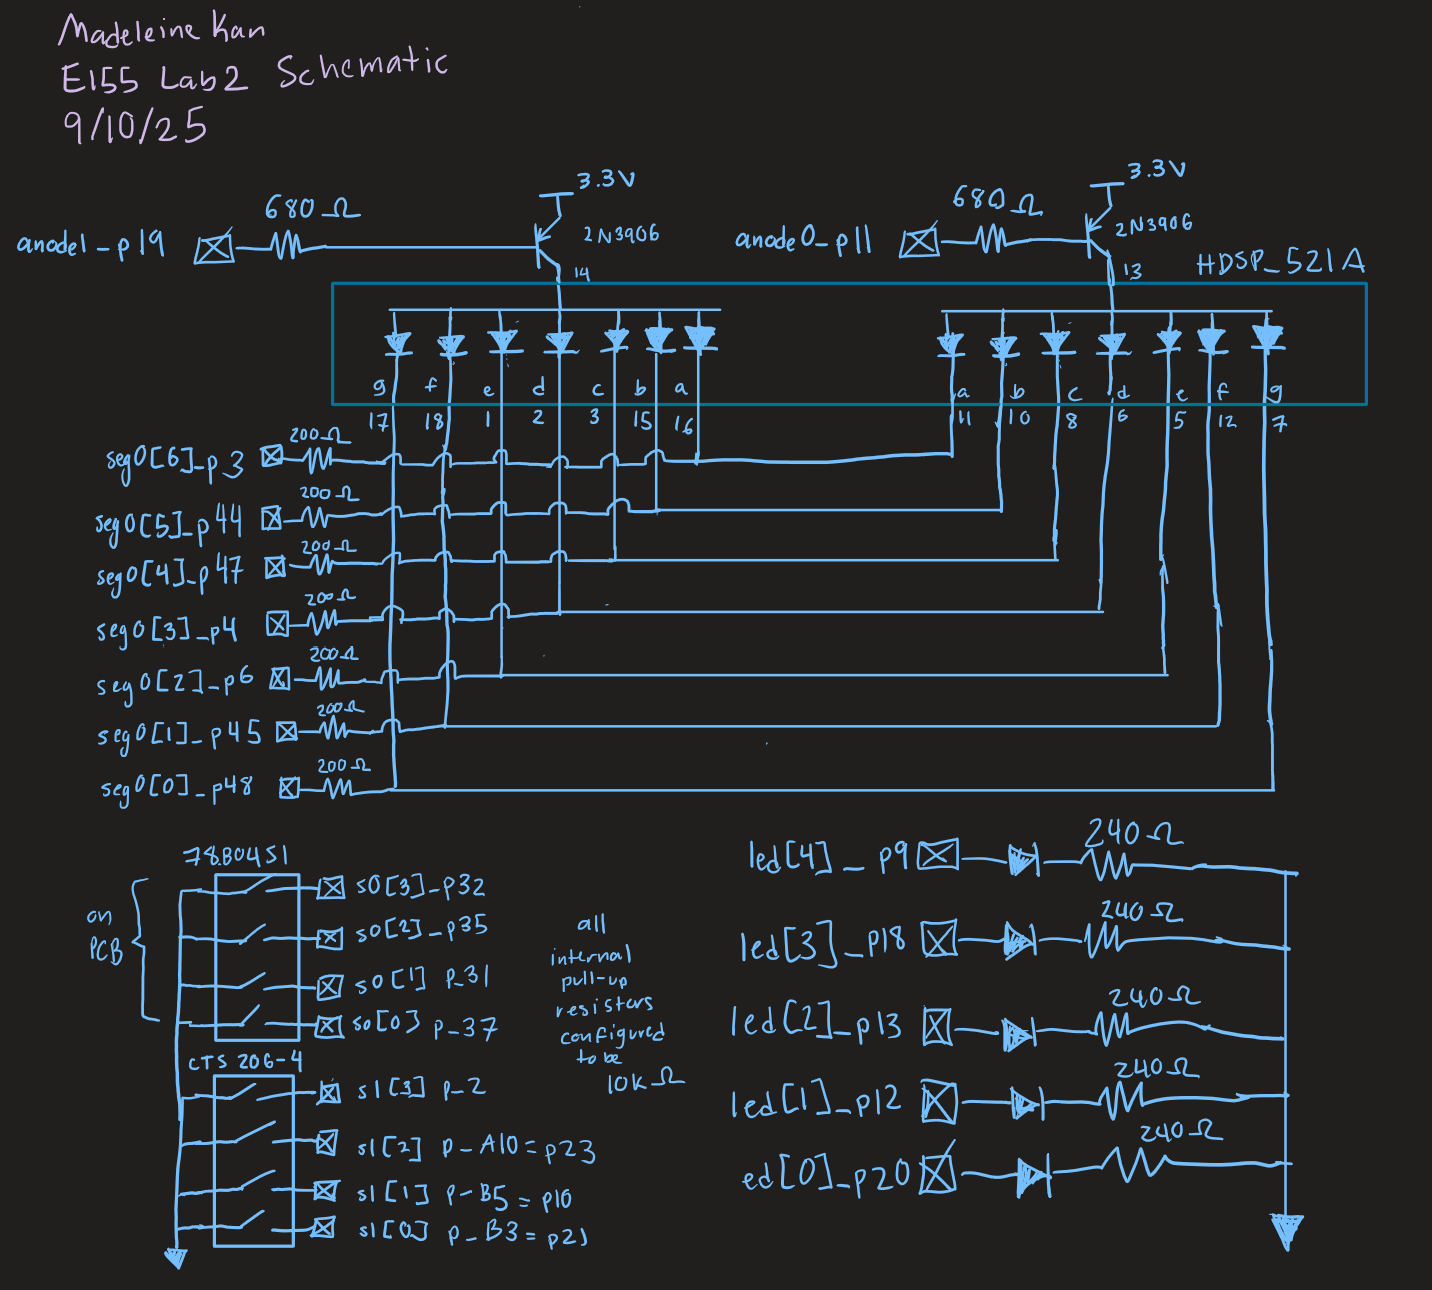 Madeleine Kan
E155 Lab2 Schematic
9/10/25
3.3V
3.3V
680Ω
680Ω
anode1_p19
2N3906
anode0_p11
2N3906
14
13
HDSP_521A
g f e d c b a
a b c d e f g
17 18 1 2 3 15 16
11 10 8 6 5 12 7
200Ω
seg0[6]_p3
200Ω
seg0[5]_p44
200Ω
seg0[4]_p47
200Ω
seg0[3]_p4
200Ω
seg0[2]_p6
200Ω
seg0[1]_p45
200Ω
seg0[0]_p48
78B04S1
on
PCB
s0[3]_p32
s0[2]_p35
s0[1] p_31
s0[0] p_37
CTS 206-4
s1[3] p_2
s1[2] p_A10=p23
s1[1] p_B5=p10
s1[0] p_B3=p21
all
internal
pull-up
resistors
configured
to be
10kΩ
240Ω
led[4]_p9
240Ω
led[3]_p18
240Ω
led[2]_p13
240Ω
led[1]_p12
240Ω
ed[0]_p20